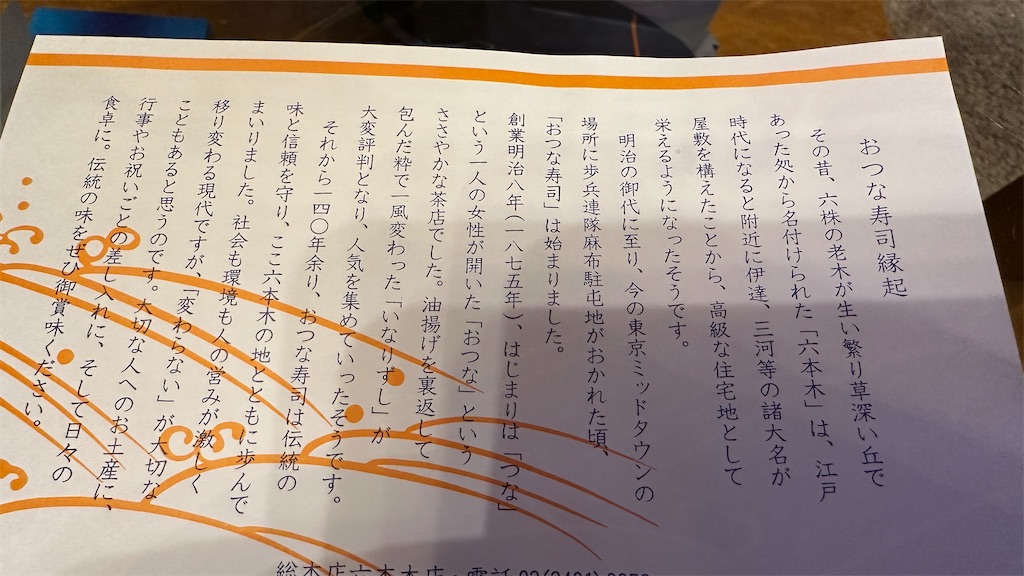 おつな寿司縁起
その昔、六株の老木が生い繁り草深い丘で
あった処から名付けられた「六本木」は、江戸
時代になると附近に伊達、三河等の諸大名が
屋敷を構えたことから、高級な住宅地として
栄えるようになったそうです。
明治の御代に至り、今の東京ミッドタウンの
場所に歩兵連隊麻布駐屯地がおかれた頃、
「おつな寿司」は始まりました。
創業明治八年(一八七五年)、はじまりは「つな」
という一人の女性が開いた「おつな」という
ささやかな茶店でした。油揚げを裏返して
包んだ粋で一風変わった「いなりずし」が
大変評判となり、人気を集めていったそうです。
それから一四〇年余り、おつな寿司は伝統の
味と信頼を守り、ここ六本木の地とともに歩んで
まいりました。社会も環境も人の営みが激しく
移り変わる現代ですが、「変わらない」が大切な
こともあると思うのです。大切な人へのお土産に、
行事やお祝いごとの差し入れに、そして日々の
食卓に。伝統の味をぜひ御賞味ください。
総本店六本木店・電話03(3401)